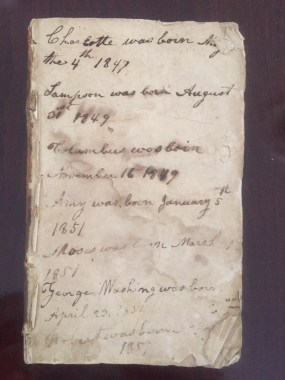 Charlotte was born
the 4th 1847
Sampson was born August
1849
Columbus was born
November 16 1849
Amy was born January 5th
1851
Moses was born March
1851
George Washing was born
April 23
Robert was born
185